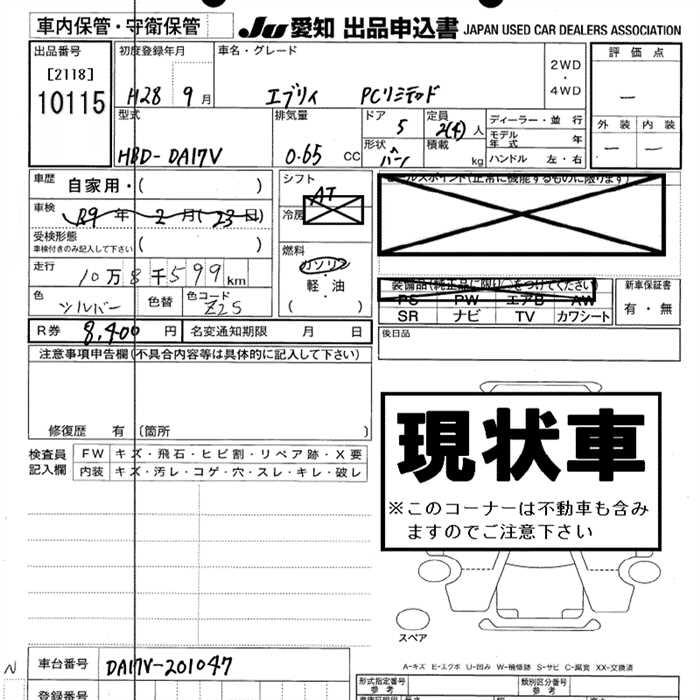 車内保管・守衛保管
JU 愛知 出品申込書 JAPAN USED CAR DEALERS ASSOCIATION
出品番号
[2118]
10115
初度登録年月
H28 9月
車名・グレード
エブリイ PCリミテッド
2WD
・
4WD
評価点
―
外装 内装
― ―
型式
HBD-DA17V
排気量
0.65 CC
ドア
5
定員
2(4)人
形状
バン
積載
kg
ディーラー・並行
モデル年式 年
ハンドル 左・右
車歴 自家用・( )
車検 R9年2月(23日)
受検形態
車検付きのみ記入して下さい ( )
走行 10万8千599km
色 シルバー 色替 色コード Z2S
シフト
AT
冷房
燃料
ガソリン
・
軽・油
( )
セールスポイント(正常に機能するものに限ります)
装備品(純正品に限り○をつけてください)
PS PW エアB AW
SR ナビ TV カワシート
新車保証書
有・無
R券 8,400円 名変通知期限 月 日
後日品
注意事項申告欄(不具合内容等は具体的に記入して下さい)
修復歴 有 〔箇所 〕
検査員記入欄
FW キズ・飛石・ヒビ割・リペア跡・X要
内装 キズ・汚レ・コゲ・穴・スレ・キレ・破レ
現状車
※このコーナーは不動車も含み
ますのでご注意下さい
スペア
A-キズ E-エクボ U-凹み W-補修跡 S-サビ C-腐食 XX-交換済
N
車台番号 DA17V-201047
登録番号
形式指定番号
参考
類別区分番号
参考